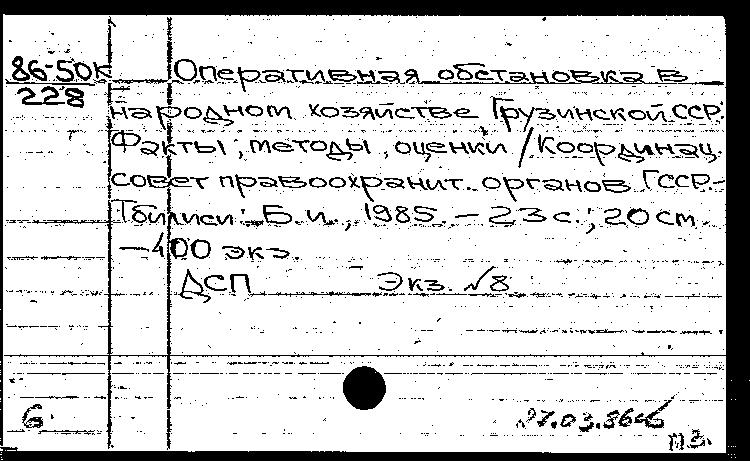 86-50к Оперативная обстановка в
228
народном хозяйстве Грузинской ССР.
Факты, методы, оценки / Координац.
совет правоохранит. органов ГССР.-
Тбилиси: Б.и., 1985. – 23 с.; 20 см.
– 400 экз.
ДСП Экз. №8
6.
27.03.86